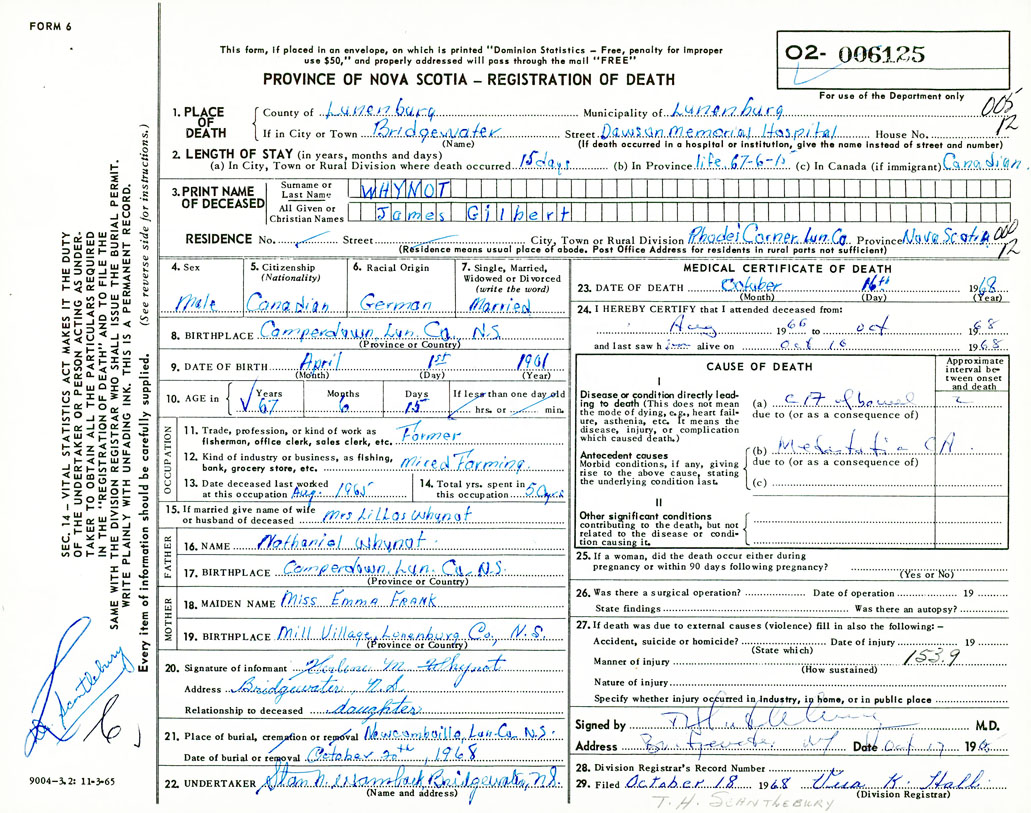 FORM 6
This form, if placed in an envelope, on which is printed "Dominion Statistics – Free, penalty for improper
use $50," and properly addressed will pass through the mail "FREE"
PROVINCE OF NOVA SCOTIA – REGISTRATION OF DEATH
O2- 006125
For use of the Department only
005
12
SEC. 14 – VITAL STATISTICS ACT MAKES IT THE DUTY
OF THE UNDERTAKER OR PERSON ACTING AS UNDER-
TAKER TO OBTAIN ALL THE PARTICULARS REQUIRED
IN THE "REGISTRATION OF DEATH" AND TO FILE THE
SAME WITH THE DIVISION REGISTRAR WHO SHALL ISSUE THE BURIAL PERMIT.
WRITE PLAINLY WITH UNFADING INK. THIS IS A PERMANENT RECORD.
Every item of information should be carefully supplied. (See reverse side for instructions.)
Scantlebury
9004-3.2: 11-3-65
1. PLACE OF DEATH
County of Lunenburg Municipality of Lunenburg
If in City or Town Bridgewater Street Dawson Memorial Hospital House No.
(Name) (If death occurred in a hospital or institution, give the name instead of street and number)
2. LENGTH OF STAY (in years, months and days)
(a) In City, Town or Rural Division where death occurred 15 days (b) In Province life 67-6-15 (c) In Canada (if immigrant) Canadian
3. PRINT NAME OF DECEASED
Surname or Last Name WHYNOT
All Given or Christian Names James Gilbert
RESIDENCE No. Street City, Town or Rural Division Corner Lun. Co. Province Nova Scotia
000
12
(Residence means usual place of abode. Post Office Address for residents in rural parts not sufficient)
4. Sex
Male
5. Citizenship (Nationality)
Canadian
6. Racial Origin
German
7. Single, Married, Widowed or Divorced (write the word)
Married
8. BIRTHPLACE Camperdown, Lun. Co., N.S.
(Province or Country)
9. DATE OF BIRTH April 1st 1901
(Month) (Day) (Year)
10. AGE in Years Months Days If less than one day old
67 6 15 hrs. or min.
OCCUPATION
11. Trade, profession, or kind of work as fisherman, office clerk, sales clerk, etc. Farmer
12. Kind of industry or business, as fishing, bank, grocery store, etc. Mixed Farming
13. Date deceased last worked at this occupation Aug. 1965
14. Total yrs. spent in this occupation 50 yrs
15. If married give name of wife or husband of deceased Mrs Lillas Whynot
FATHER
16. NAME Nathaniel Whynot
17. BIRTHPLACE Camperdown, Lun. Co., N.S.
(Province or Country)
MOTHER
18. MAIDEN NAME Miss Emma FRANK
19. BIRTHPLACE Mill Village, Lunenburg Co, N.S.
(Province or Country)
20. Signature of informant M. Whynot
Address Bridgewater, N.S.
Relationship to deceased daughter
21. Place of burial, cremation or removal Lun. Co. N.S.
Date of burial or removal October 20th, 1968
22. UNDERTAKER Bridgewater, N.S.
(Name and address)
MEDICAL CERTIFICATE OF DEATH
23. DATE OF DEATH October 16th 1968
(Month) (Day) (Year)
24. I HEREBY CERTIFY that I attended deceased from:
Aug 1966 to Oct 1968
and last saw him alive on Oct 16 1968
CAUSE OF DEATH
Approximate interval between onset and death
I
Disease or condition directly leading to death (This does not mean the mode of dying, e.g., heart failure, asthenia, etc. It means the disease, injury, or complication which caused death.)
(a) CA of bowel 2
due to (or as a consequence of)
Antecedent causes
Morbid conditions, if any, giving rise to the above cause, stating the underlying condition last.
(b) Metastatic CA
due to (or as a consequence of)
(c)
II
Other significant conditions
contributing to the death, but not related to the disease or condition causing it.
25. If a woman, did the death occur either during
pregnancy or within 90 days following pregnancy?
(Yes or No)
26. Was there a surgical operation? Date of operation 19
State findings Was there an autopsy?
27. If death was due to external causes (violence) fill in also the following: –
Accident, suicide or homicide? Date of injury 19
(State which)
Manner of injury 153.9
(How sustained)
Nature of injury
Specify whether injury occurred in industry, in home, or in public place
Signed by M.D.
Address Bridgewater NS Date Oct 17 1968
28. Division Registrar's Record Number
29. Filed October 18 1968 Vera K. Hall
(Division Registrar)
T. H. SCANTLEBURY